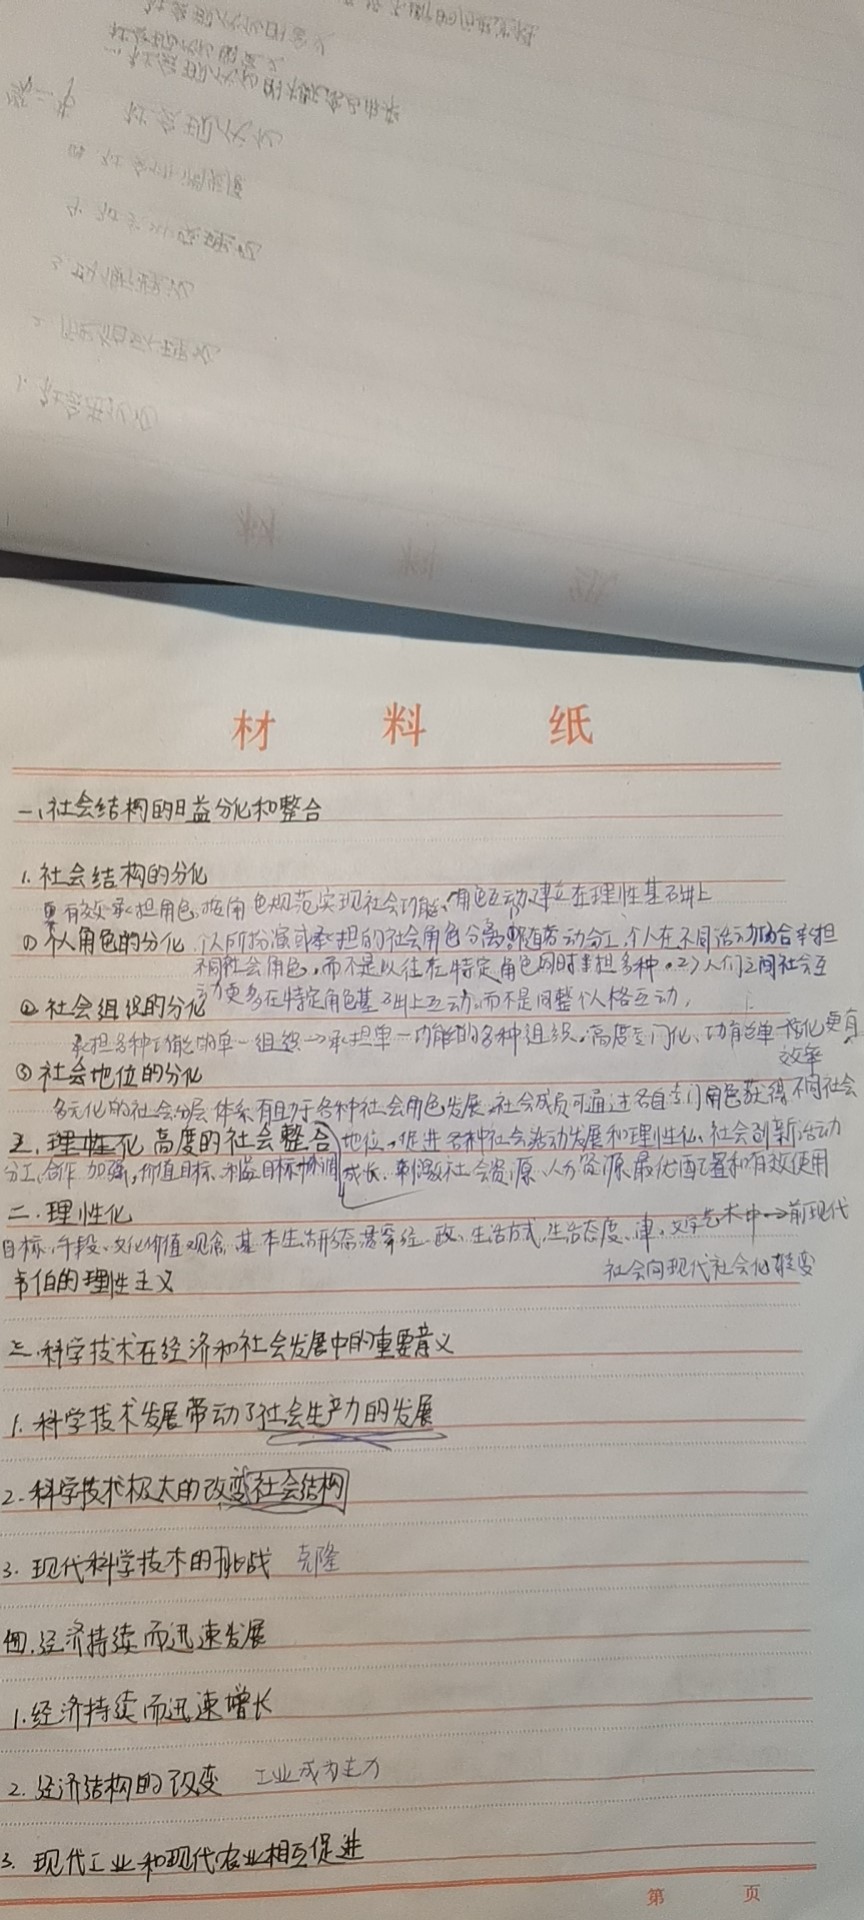 材 料 纸
一、社会结构的日益分化和整合
1. 社会结构的分化
更有效承担角色,按角色规范实现社会功能、角色互动建立在理性基础上
① 个人角色的分化 个人所扮演或承担的社会角色分离,随着劳动分工,个人在不同活动场合承担
不同社会角色,而不是以往在特定角色同时承担多种。2)人们之间社会互
动更多在特定角色基础上互动,而不是同整个人格互动,
② 社会组织的分化
承担多种功能的单一组织→承担单一功能的多种组织。高度专门化、功能单一化更有
效率
③ 社会地位的分化
多元化的社会分层体系有助于各种社会角色发展。社会成员可通过各自专门角色获得不同社会
2. 理性化 高度的社会整合 地位,促进各种社会活动发展和理性化、社会创新活动
分工、合作加强,价值目标、利益目标协调 成长、刺激社会资源、人力资源最优配置和有效使用
二. 理性化
目标、手段、文化价值观念,基本生活形态 经、政、生活方式,生活态度、律、文学艺术中→前现代
社会向现代社会化转变
韦伯的理性主义
三. 科学技术在经济和社会发展中的重要意义
1. 科学技术发展带动了社会生产力的发展
2. 科学技术极大的改变社会结构
3. 现代科学技术的挑战 克隆
四. 经济持续而迅速发展
1. 经济持续而迅速增长
2. 经济结构的改变 工业成为主力
3. 现代工业和现代农业相互促进
第 页